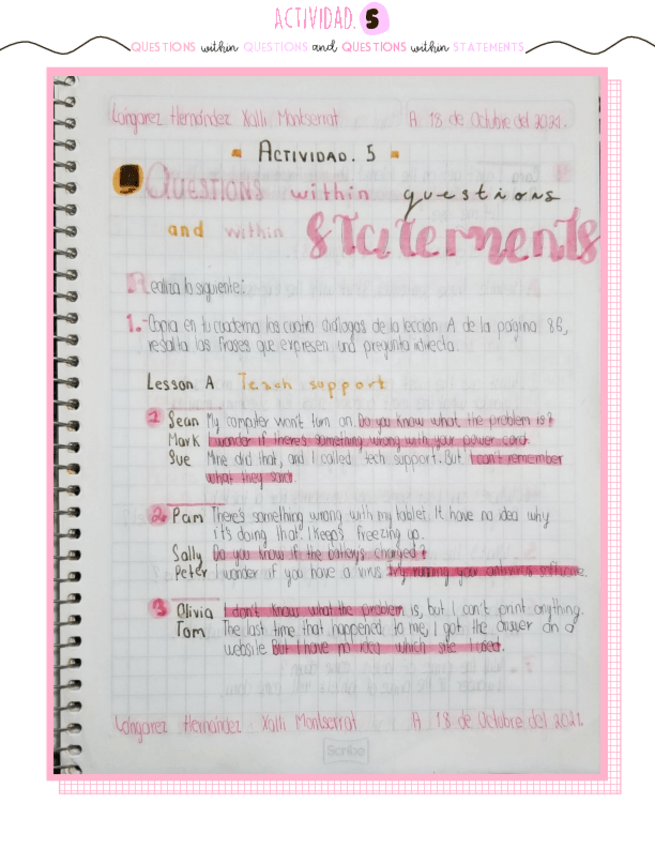 ACTIVIDAD. 5
QUESTIONS within QUESTIONS and QUESTIONS within STATEMENTS
Longarez Hernández Xalli Montserrat A 18 de Octubre del 2021.
ACTIVIDAD. 5
QUESTIONS within questions
and within statements
Realiza lo siguiente;
1.-Copia en tu cuaderno los cuatro diálogos de la lección A de la página 86,
resalta las frases que expresen una pregunta indirecta.
Lesson A Teach support
1 Sean My computer won't turn on. Do you know what the problem is?
Mark I wonder if there's something wrong with your power cord.
Sue Mine did that, and I called tech support. But I can't remember
what they said.
2 Pam There's something wrong with my tablet. It have no idea why
it's doing that. I Keeps freezing up.
Sally Do you know if the battery's charged?
Peter I wonder if you have a virus try running your antivirus software.
3 Olivia I don't know what the problem is, but I can't print anything.
Tom The last time that happened to me, I got the answer on a
website But I have no idea which site I used.
Longarez Hernández Xalli Montserrat A 18 de Octubre del 2021.
Scribe